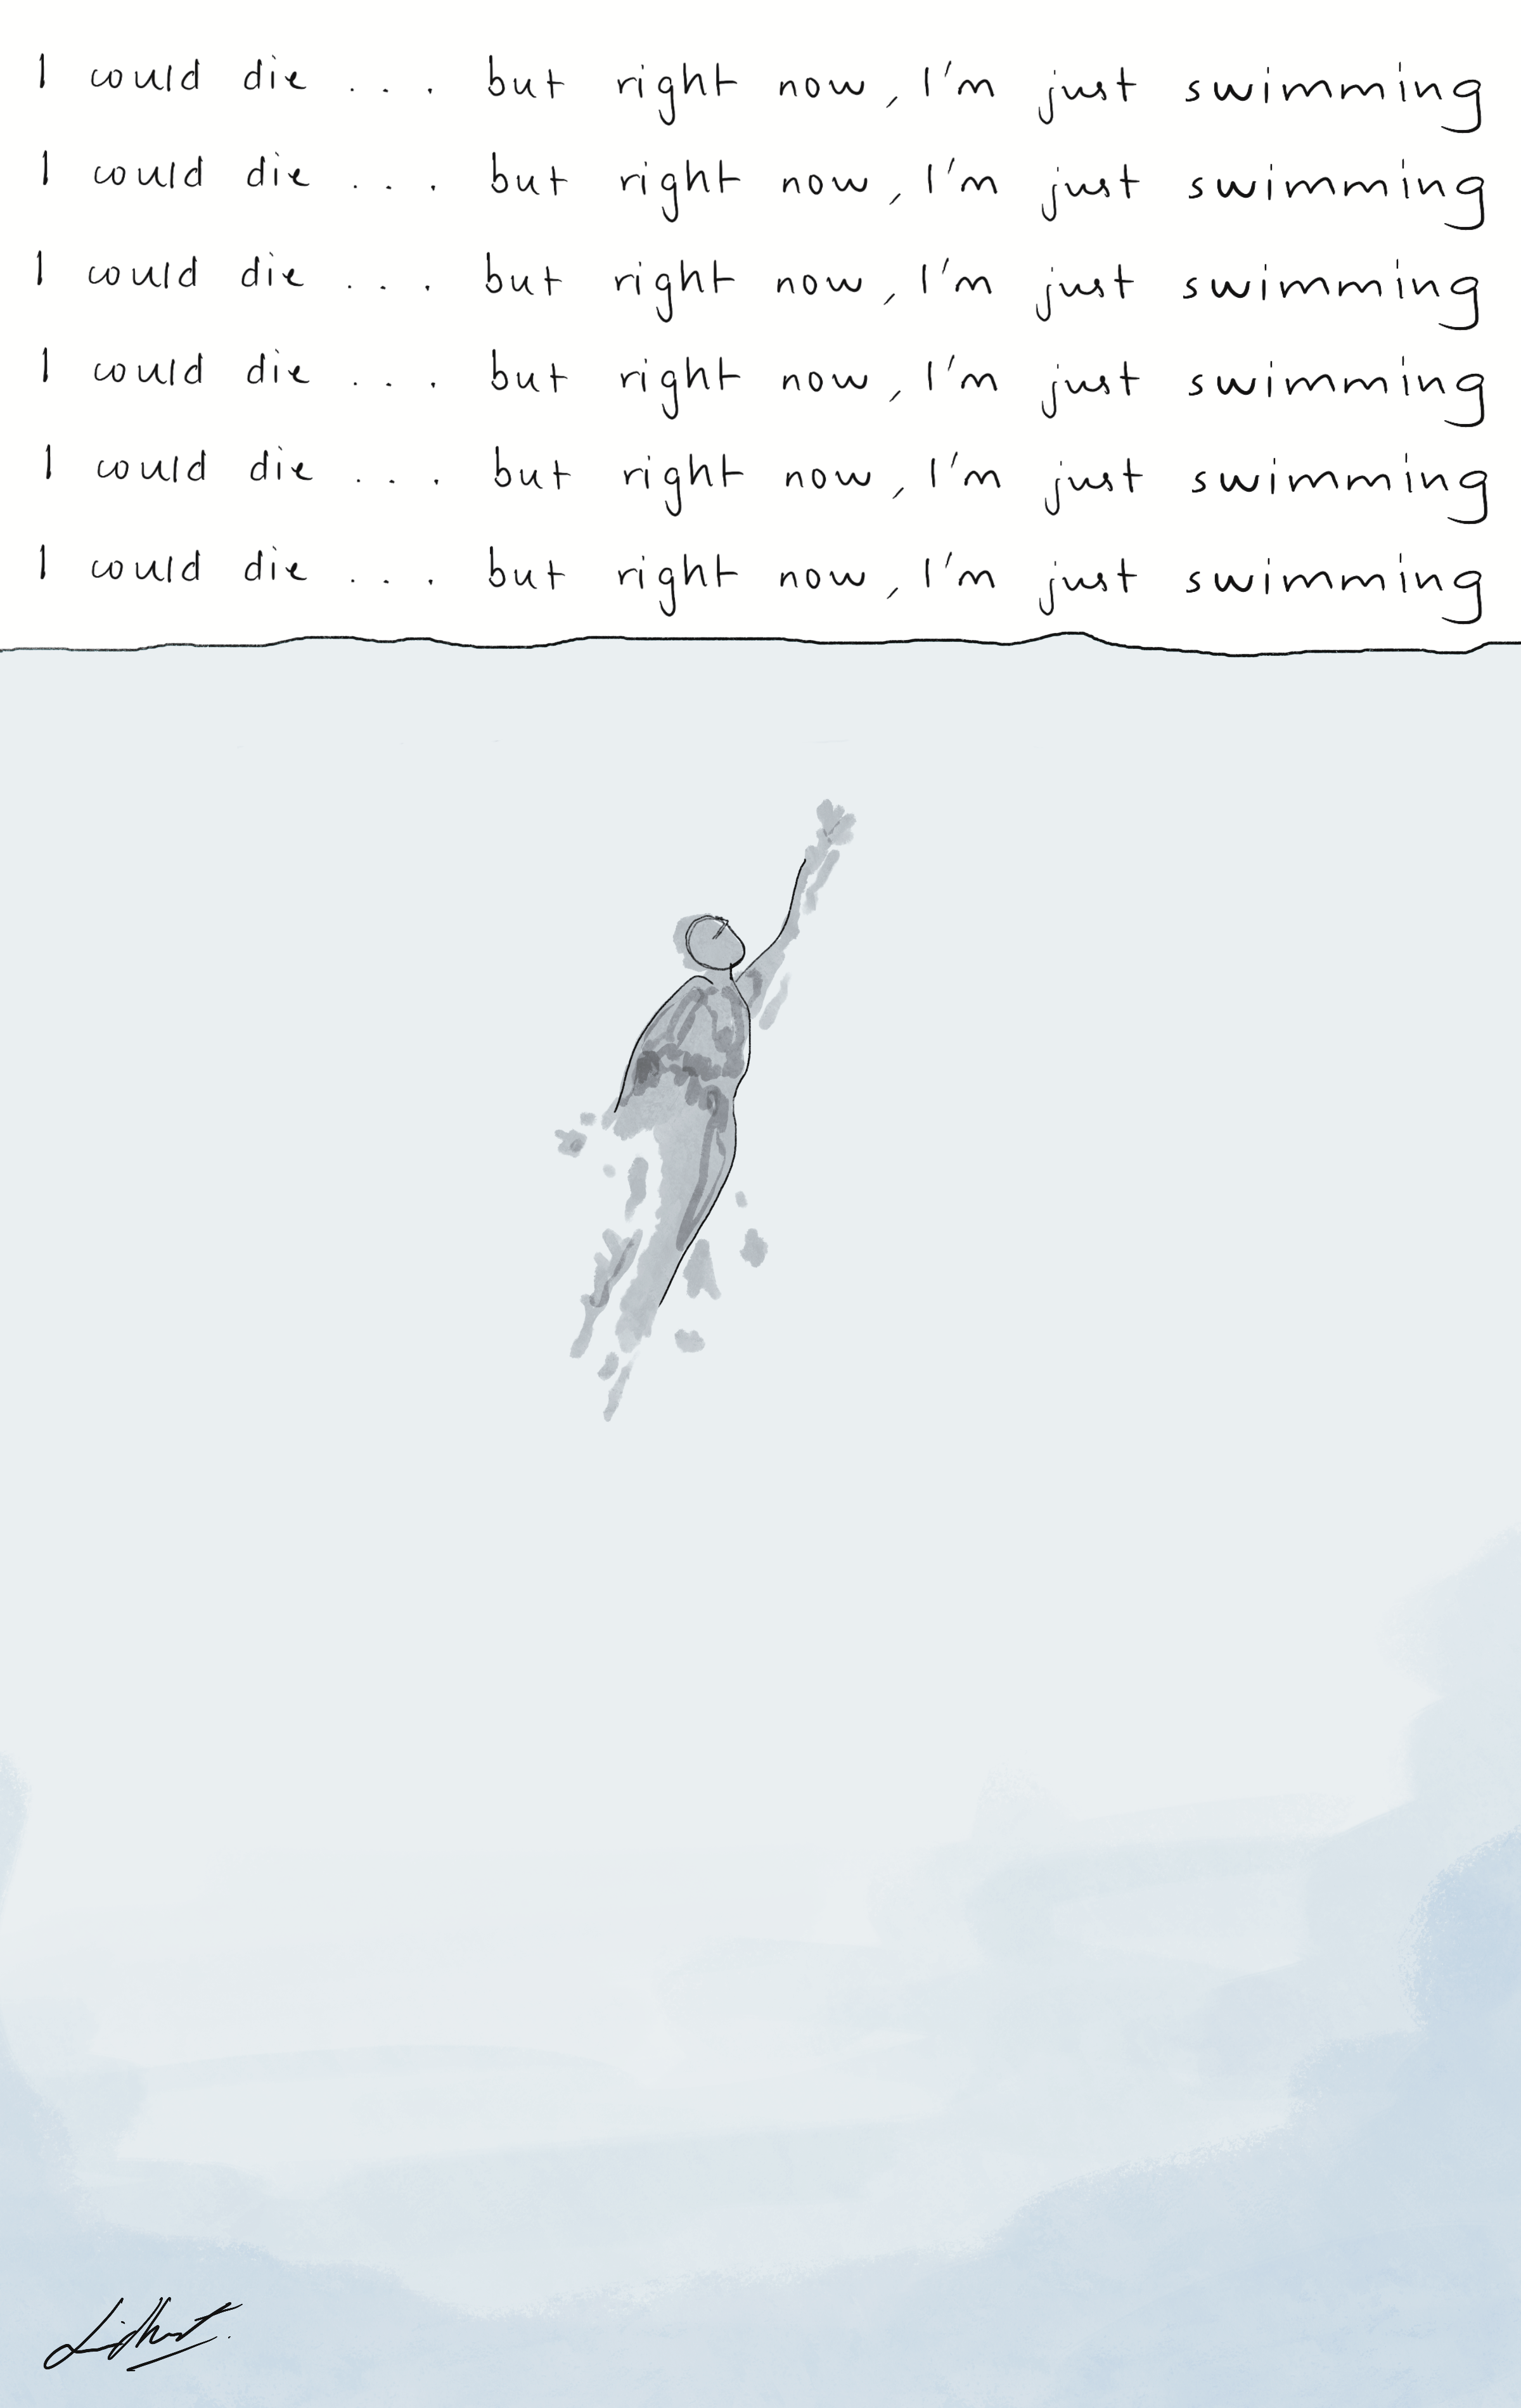 I could die ... but right now, I'm just swimming
I could die ... but right now, I'm just swimming
I could die ... but right now, I'm just swimming
I could die ... but right now, I'm just swimming
I could die ... but right now, I'm just swimming
I could die ... but right now, I'm just swimming